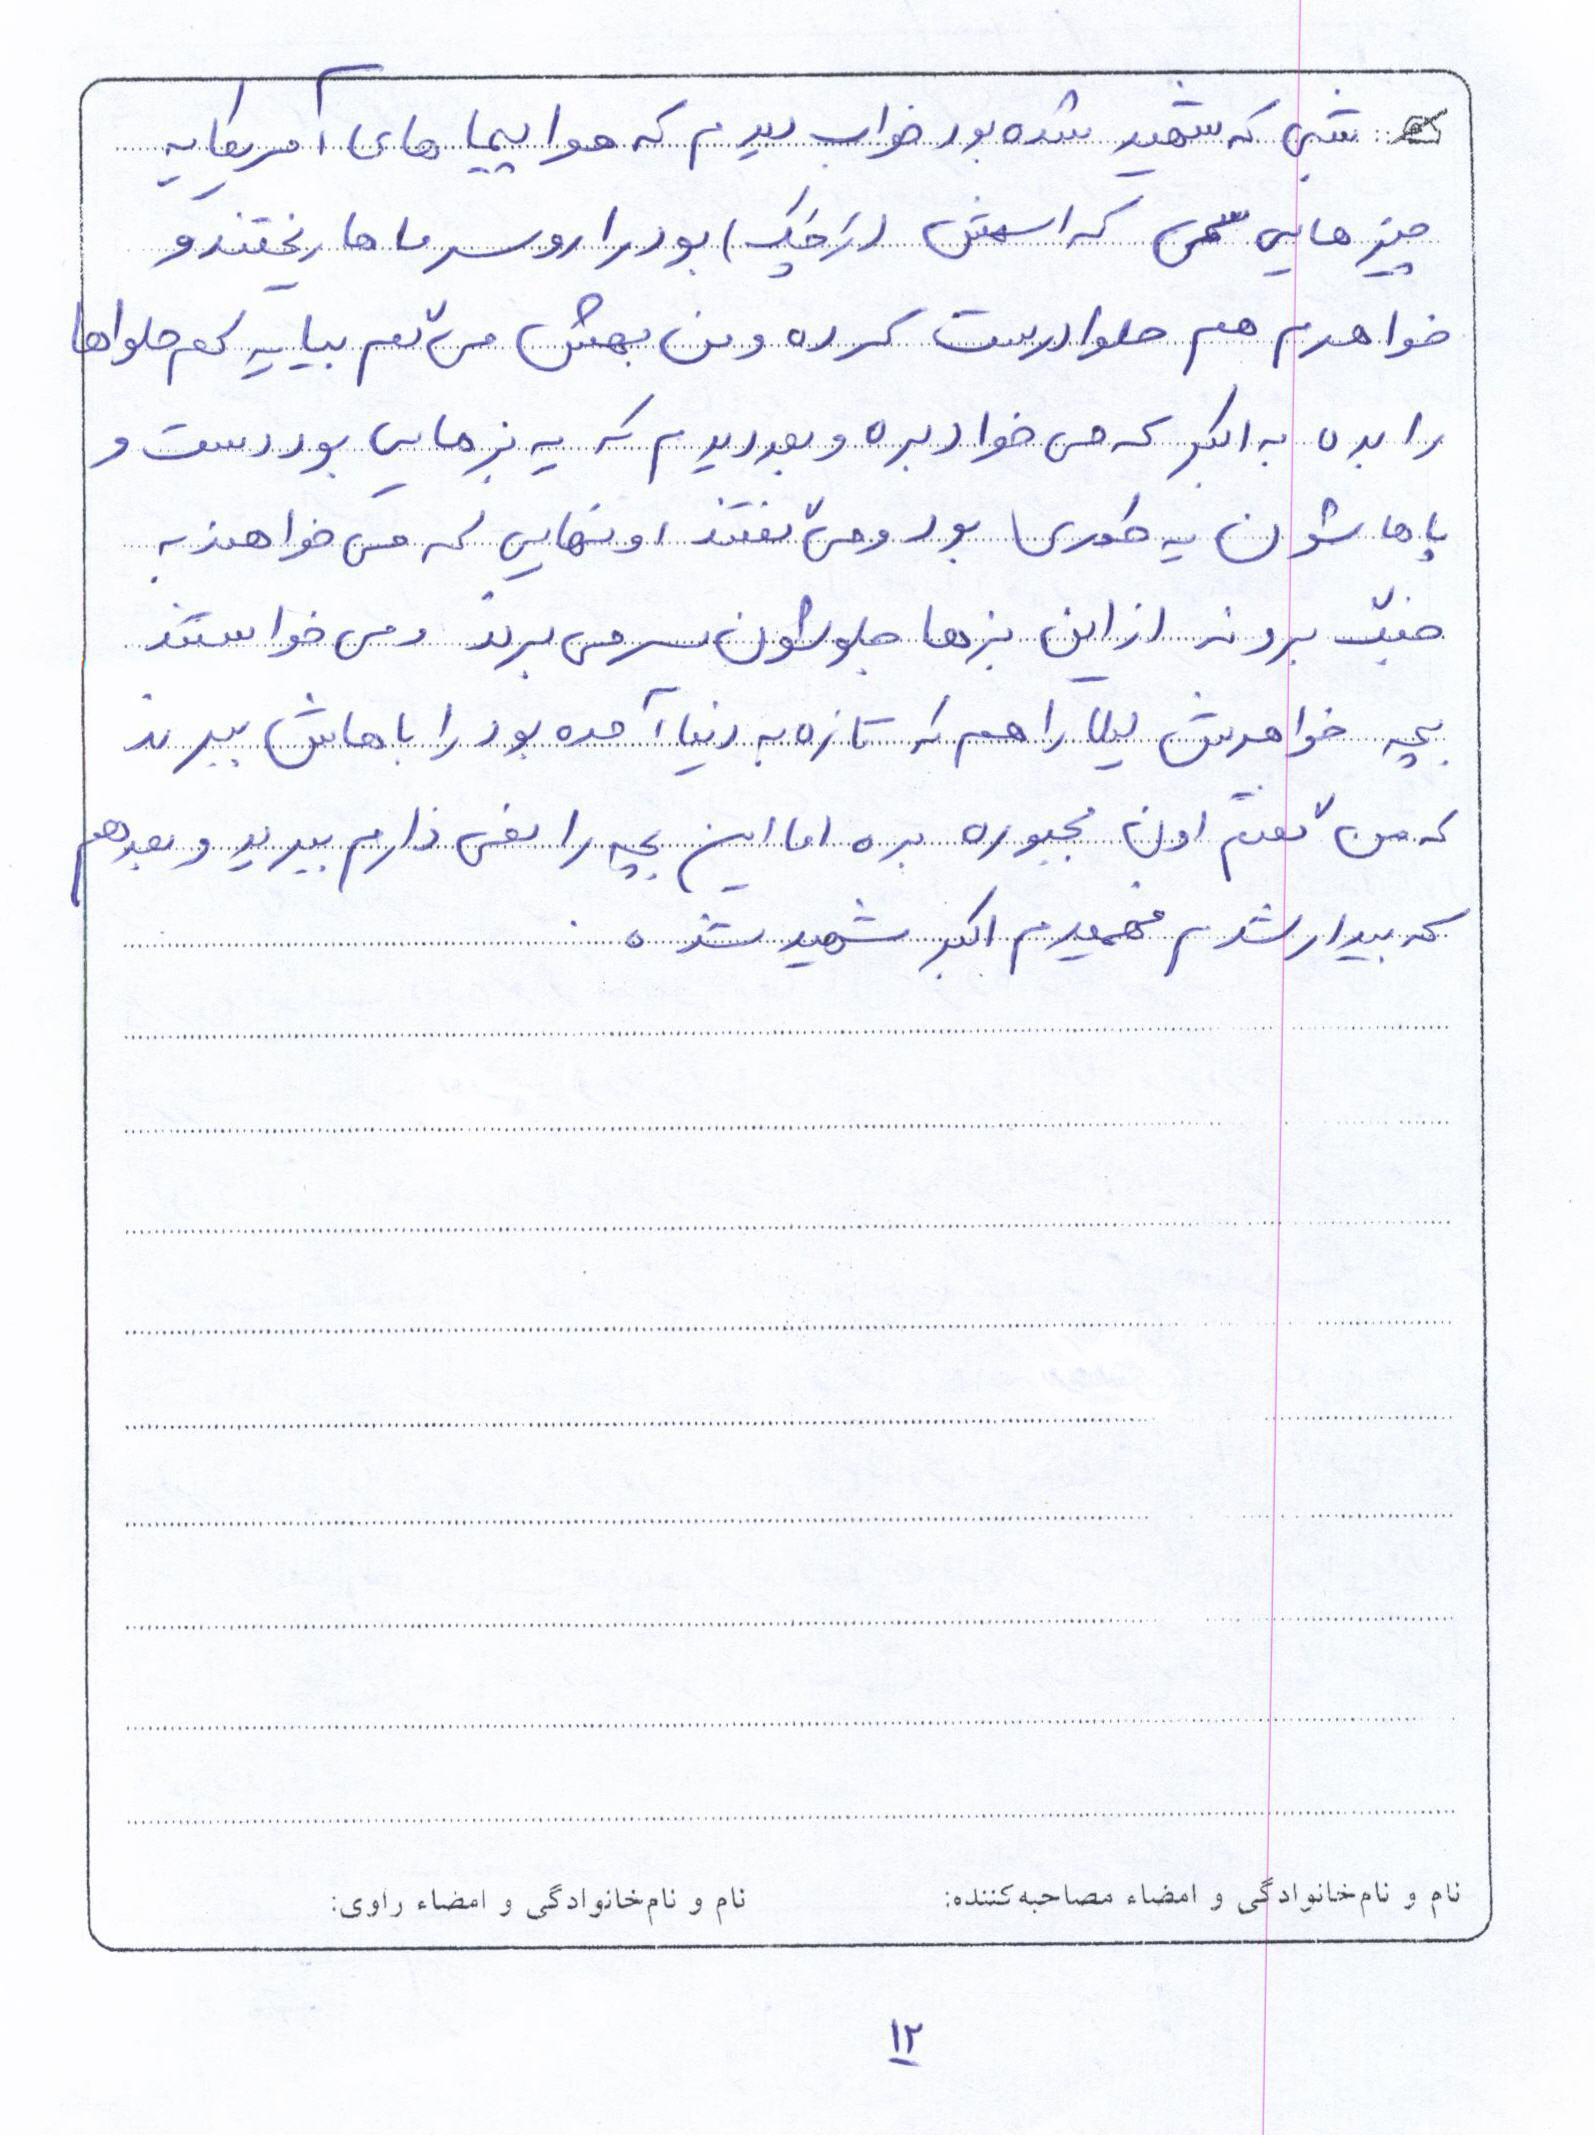 شبی که شهید شده بود خواب دیدم که هواپیما های آمریکا یه
چیز هایی سمی که اسمش بود را رو سر ماها ریختند و
خواهرم هم حلوا درست کرده و من بهش می گم بیا یه کم حلواها
را بده به اکبر که می خواد بره و بعد دیدم که یه بزهایی بود دست و
پاهاشون یه طوری بود و می گفتند اونهایی که می خواهند به
جنگ بروند از این بزها جلوشون سر می برند و می خواستند
بچه خواهرش لیلا را هم که تازه به دنیا آمده بود را باهاش ببرند
که من گفتم اون مجبوره بره اما این بچه را نمی ذارم ببرید و بعد هم
که بیدار شدم فهمیدم اکبر شهید شده .
نام و نام‌خانوادگی و امضاء مصاحبه‌کننده: نام و نام‌خانوادگی و امضاء راوی:
۱۲